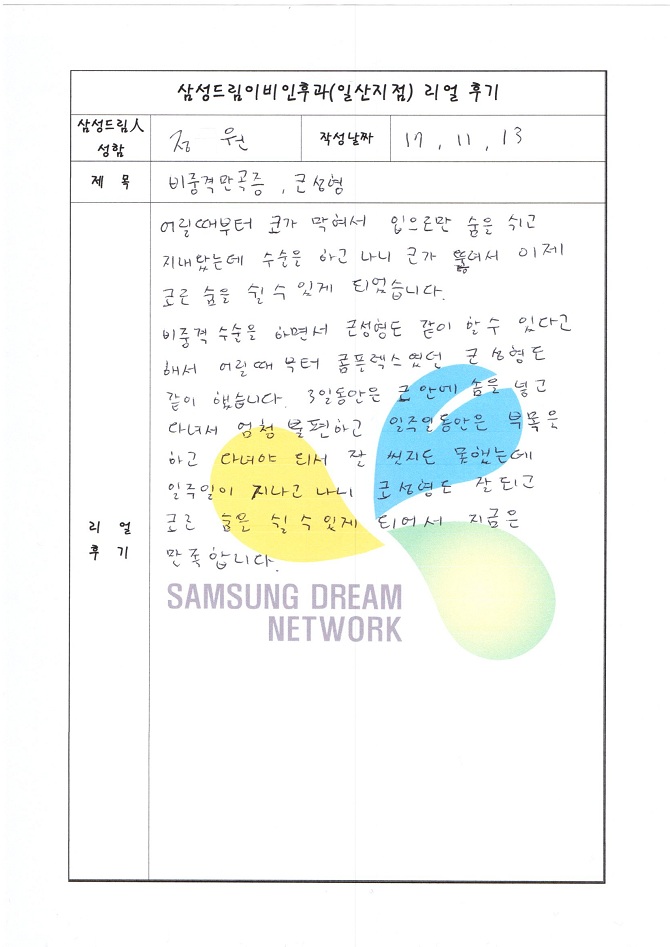 삼성드림이비인후과(일산지점) 리얼 후기
삼성드림人
성함
정 원
작성날짜
17, 11, 13
제 목
비중격만곡증, 코성형
어릴때부터 코가 막혀서 입으로만 숨을 쉬고
지내왔는데 수술을 하고 나니 코가 뚫려서 이제
코로 숨을 쉴 수 있게 되었습니다.
비중격 수술을 하면서 코성형도 같이 할 수 있다고
해서 어릴때 부터 콤프렉스였던 코 성형도
같이 했습니다. 3일동안은 코 안에 솜을 넣고
다녀서 엄청 불편하고 일주일동안은 부목을
하고 다녀야 되서 잘 씻지도 못했는데
일주일이 지나고 나니 코성형도 잘되고
코로 숨을 쉴 수 있게 되어서 지금은
만족합니다.
리 얼
후 기
SAMSUNG DREAM
NETWORK